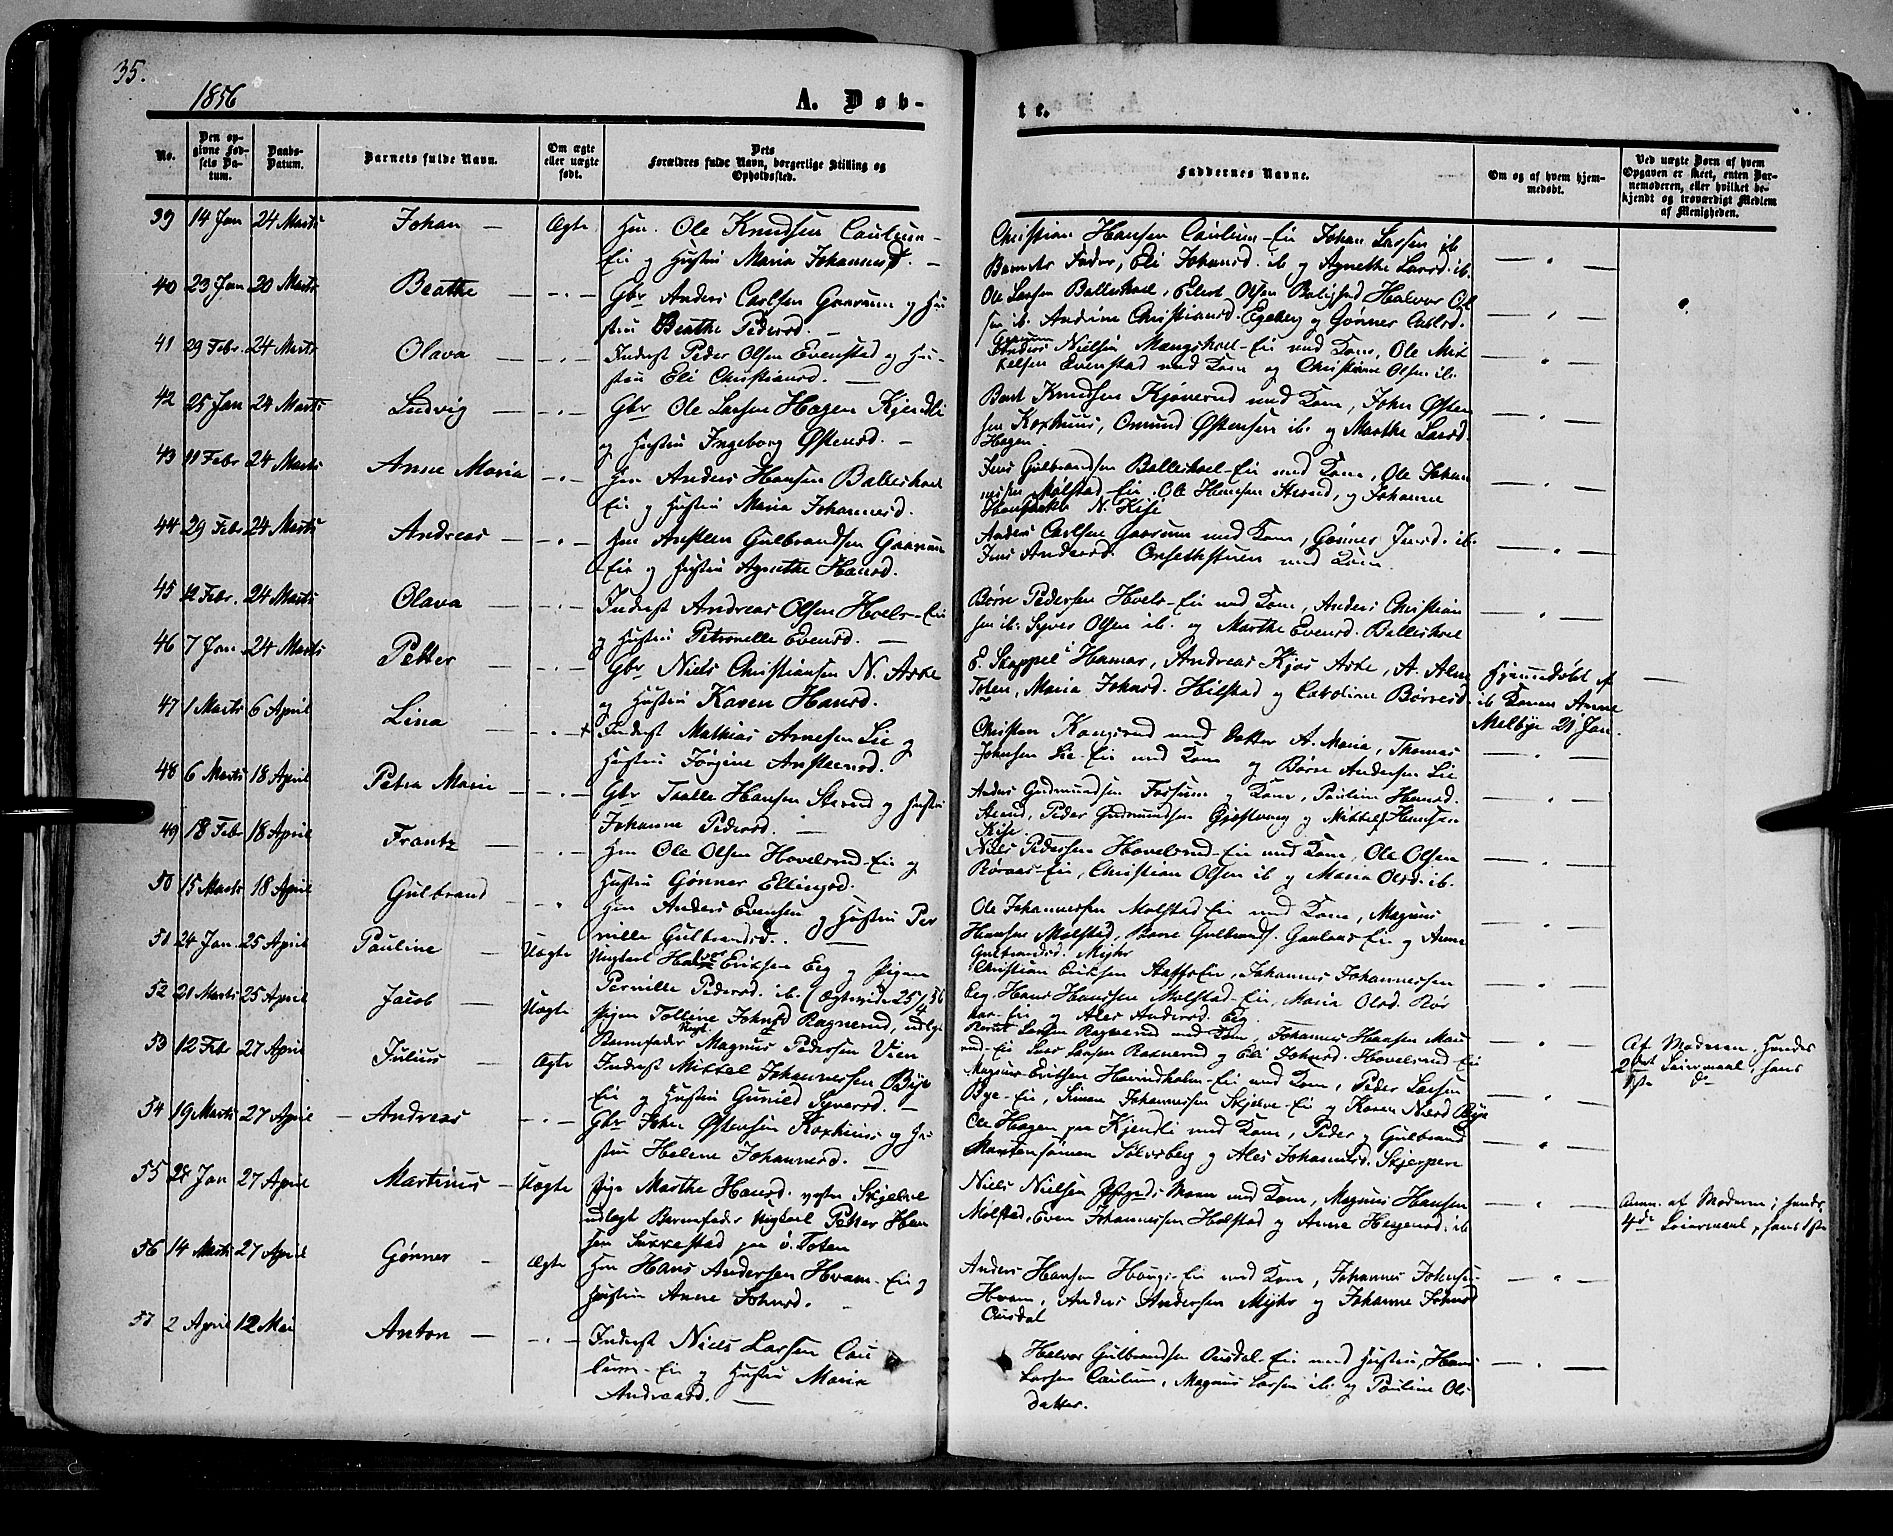 35.
1856
A. Døb-
te.
No.
Den op-
givne Fød-
sels Da-
tum.
Daabs-
Datum.
Barnets fulde Navn.
Om ægte
eller uægte
født.
Dets
Forældres fulde Navn, borgerlige Stilling og
Opholdssted.
Faddernes Navne.
Om og af hvem hjem-
medøbt.
Ved uægte Børn af hvem
Opgaven er skeet, enten Bar-
nemoderen, eller hvilket be-
kjendt og troværdigt Medlem
af Menigheden.
39 14 Jan 24 Marts Johan — Ægte Hm. Ole Knudsen Caulum-
Eie og Hustru Maria Johannesd. —
Christian Hansen Caulum-Eie Johan Larsen ib
Barnets Fader, Eli Johansd. ib og Agnethe Larsd. ib.
40 23 Jan 20 Marts Beathe — Gbr Anders Carlsen Gaarum og Hu
stru Beathe Pedersd. —
Ole Larsen Balleshoel, Olsen Halvor Ol
sen ib. Andrine Christiansd. Egeberg og Gønner Carlsd.
Gaarum
41 29 Febr. 24 Marts Olava — Inderst Peder Olsen Evenstad og Hu-
stru Eli Christiansd. —
Anders Nielsen Mængshoel-Eie med Kone, Ole Mik
kelsen Evenstad med Kone og Christian Olsen ib.
42 25 Jan 24 Marts Ludvig — Gbr Ole Larsen Hagen Kjendli
og Hustru Ingeborg Østensd. —
Knudsen Kjønerud med Kone, John Østen
sen Koxhuus, Omund Østensen ib. og Marthe Larsd.
Hagen
43 11 Febr 24 Marts Anne Maria — Hm Anders Hansen Balleshoel
Eie og Hustru Maria Johannesd.
Jens Gulbrandsen Balleshoel-Eie med Kone, Ole Johan
nesen Molstad-Eie, Ole Hansen Strand, og Johanne
N. Kise
44 29 Febr 24 Marts Andreas — Hm Ansteen Gulbrandsen Gaarum
Eie og Hustru Agnethe Hansd.
Anders Carlsen Gaarum med Kone, Gønner Jensd. ib.
Jens Andersd. med Kone.
45 12 Febr. 24 Marts Olava — Inderst Andreas Olsen Hoels-Eie
og Hustru Petronelle Evensd. —
Børre Pedersen Hoels-Eie med Kone, Anders Christian
sen ib. Syver Olsen ib. og Marthe Evensd. Balleshoel
46 7 Jan 24 Marts Petter — Gbr Niels Christiansen N. Aske
og Hustru Karen Hansd.
E. Stappel i Hamar, Andreas Kjos Aske, A. Alm
Toten, Maria Johnsd. Hilstad og Caroline Børresd.
Hjemmedøbt af
ib Konen Anne
Melbye 21 Jan.
47 1 Marts 6 April Lina — Inderst Mathias Arnesen Lie og
Hustru Jørgine Ansteensd.
Christen Kongsrud med Datter A. Maria, Thomas
Johnsen Lie-Eie med Kone og Børre Andersen Lie
48 6 Marts 18 April Petra Marie — Gbr Tralle Hansen Strand og Hustru
Johanne Pedersd. —
Anders Gudmundsen Fossum og Kone, Pauline Hansd.
Strand, Peder Gudmundsen og Mikkel Hansen
Kise
49 18 Febr 18 April Frantz — Hm Ole Olsen Hovelsrud-Eie og
Hustru Gønner Ellingsd.
Niels Pedersen Hovelsrud-Eie med Kone, Ole Olsen
Røraas-Eie, Christian Olsen ib og Maria Olsd. ib.
50 15 Marts 18 April Gulbrand — Hm Anders Evensen og Hustru Per
nille Gulbrandsd. —
Ole Johannessen Molstad Eie med Kone, Magnus
Hansen Molstad, Gulbrands. Eie og Anne
Gulbrandsd. Myhr
51 24 Jan. 25 April Pauline — Uægte Ungkarl Halvor Eriksen Eeg og Pigen
Pernille Pedersd. ib. (Ægteviede 25/4 56
Christian Eriksen Eie, Johannes Johannessen
Eeg, Hans Hanssen Molstad-Eie, Maria Olsd. Rør
Eie og Ales Andersd. Eeg.
52 21 Marts 25 April Jacob — Uægte Pigen Tolline Johnsd Ragnerud, udlagt
Barnefader Ungk. Magnus Pedersen Vien
Larsen Ragnerud med Kone, Johannes Hansen
Eie, Lars Larsen Ragnerud og Eli Johnsd. Hovelsrud-Eie
Af Moderen. Hendes
2det Leiermaal, hans
1ste do
53 12 Feb 27 April Julius — Ægte Inderst Mikkel Johannessen Bye
Eie og Hustru Gunild Syversd. —
Magnus Eriksen Eie med Kone, Peder Larsen
Bye-Eie, Simen Johannessen Skjelve-Eie og Karen Bye
54 19 Marts 27 April — Andreas — Gbr John Østensen Koxhuus og Hu
stru Helene Johannesd. —
Ole Hagen paa Kjendli med Kone, Peder og Gulbrand
Sølvsberg og Ales Johannesd. Skjerpen
55 28 Jan 27 April Martinus — Uægte Pige Marthe Hansd. Skjelve
udlagt Barnefader Ungkarl Petter Han
sen Sukkestad paa ø. Toten
Niels Nielsen med Kone, Magnus Hansen
Molstad, Even Johannessen Holstad og Anne ib
Anm. af Moderen; hendes
4de Leiermaal, hans 1ste
56 14 Marts 27 April Gønner — Ægte Hm Hans Andersen Hvam-Eie og
Hustru Anne Johnsd.
Anders Hansen Haugs-Eie med Kone, Johannes Johnsen
Hvam, Anders Andersen Myhr og Johanne Johnsd
Ousdal
57 2 April 12 Mai Anton — Inderst Niels Larsen Cau
lum-Eie og Hustru Maria
Andersd. —
Halvor Gulbrandsen Ousdal-Eie med Hustru, Hans
Larsen Caulum, Magnus Larsen ib. og Pauline Ols
datter.